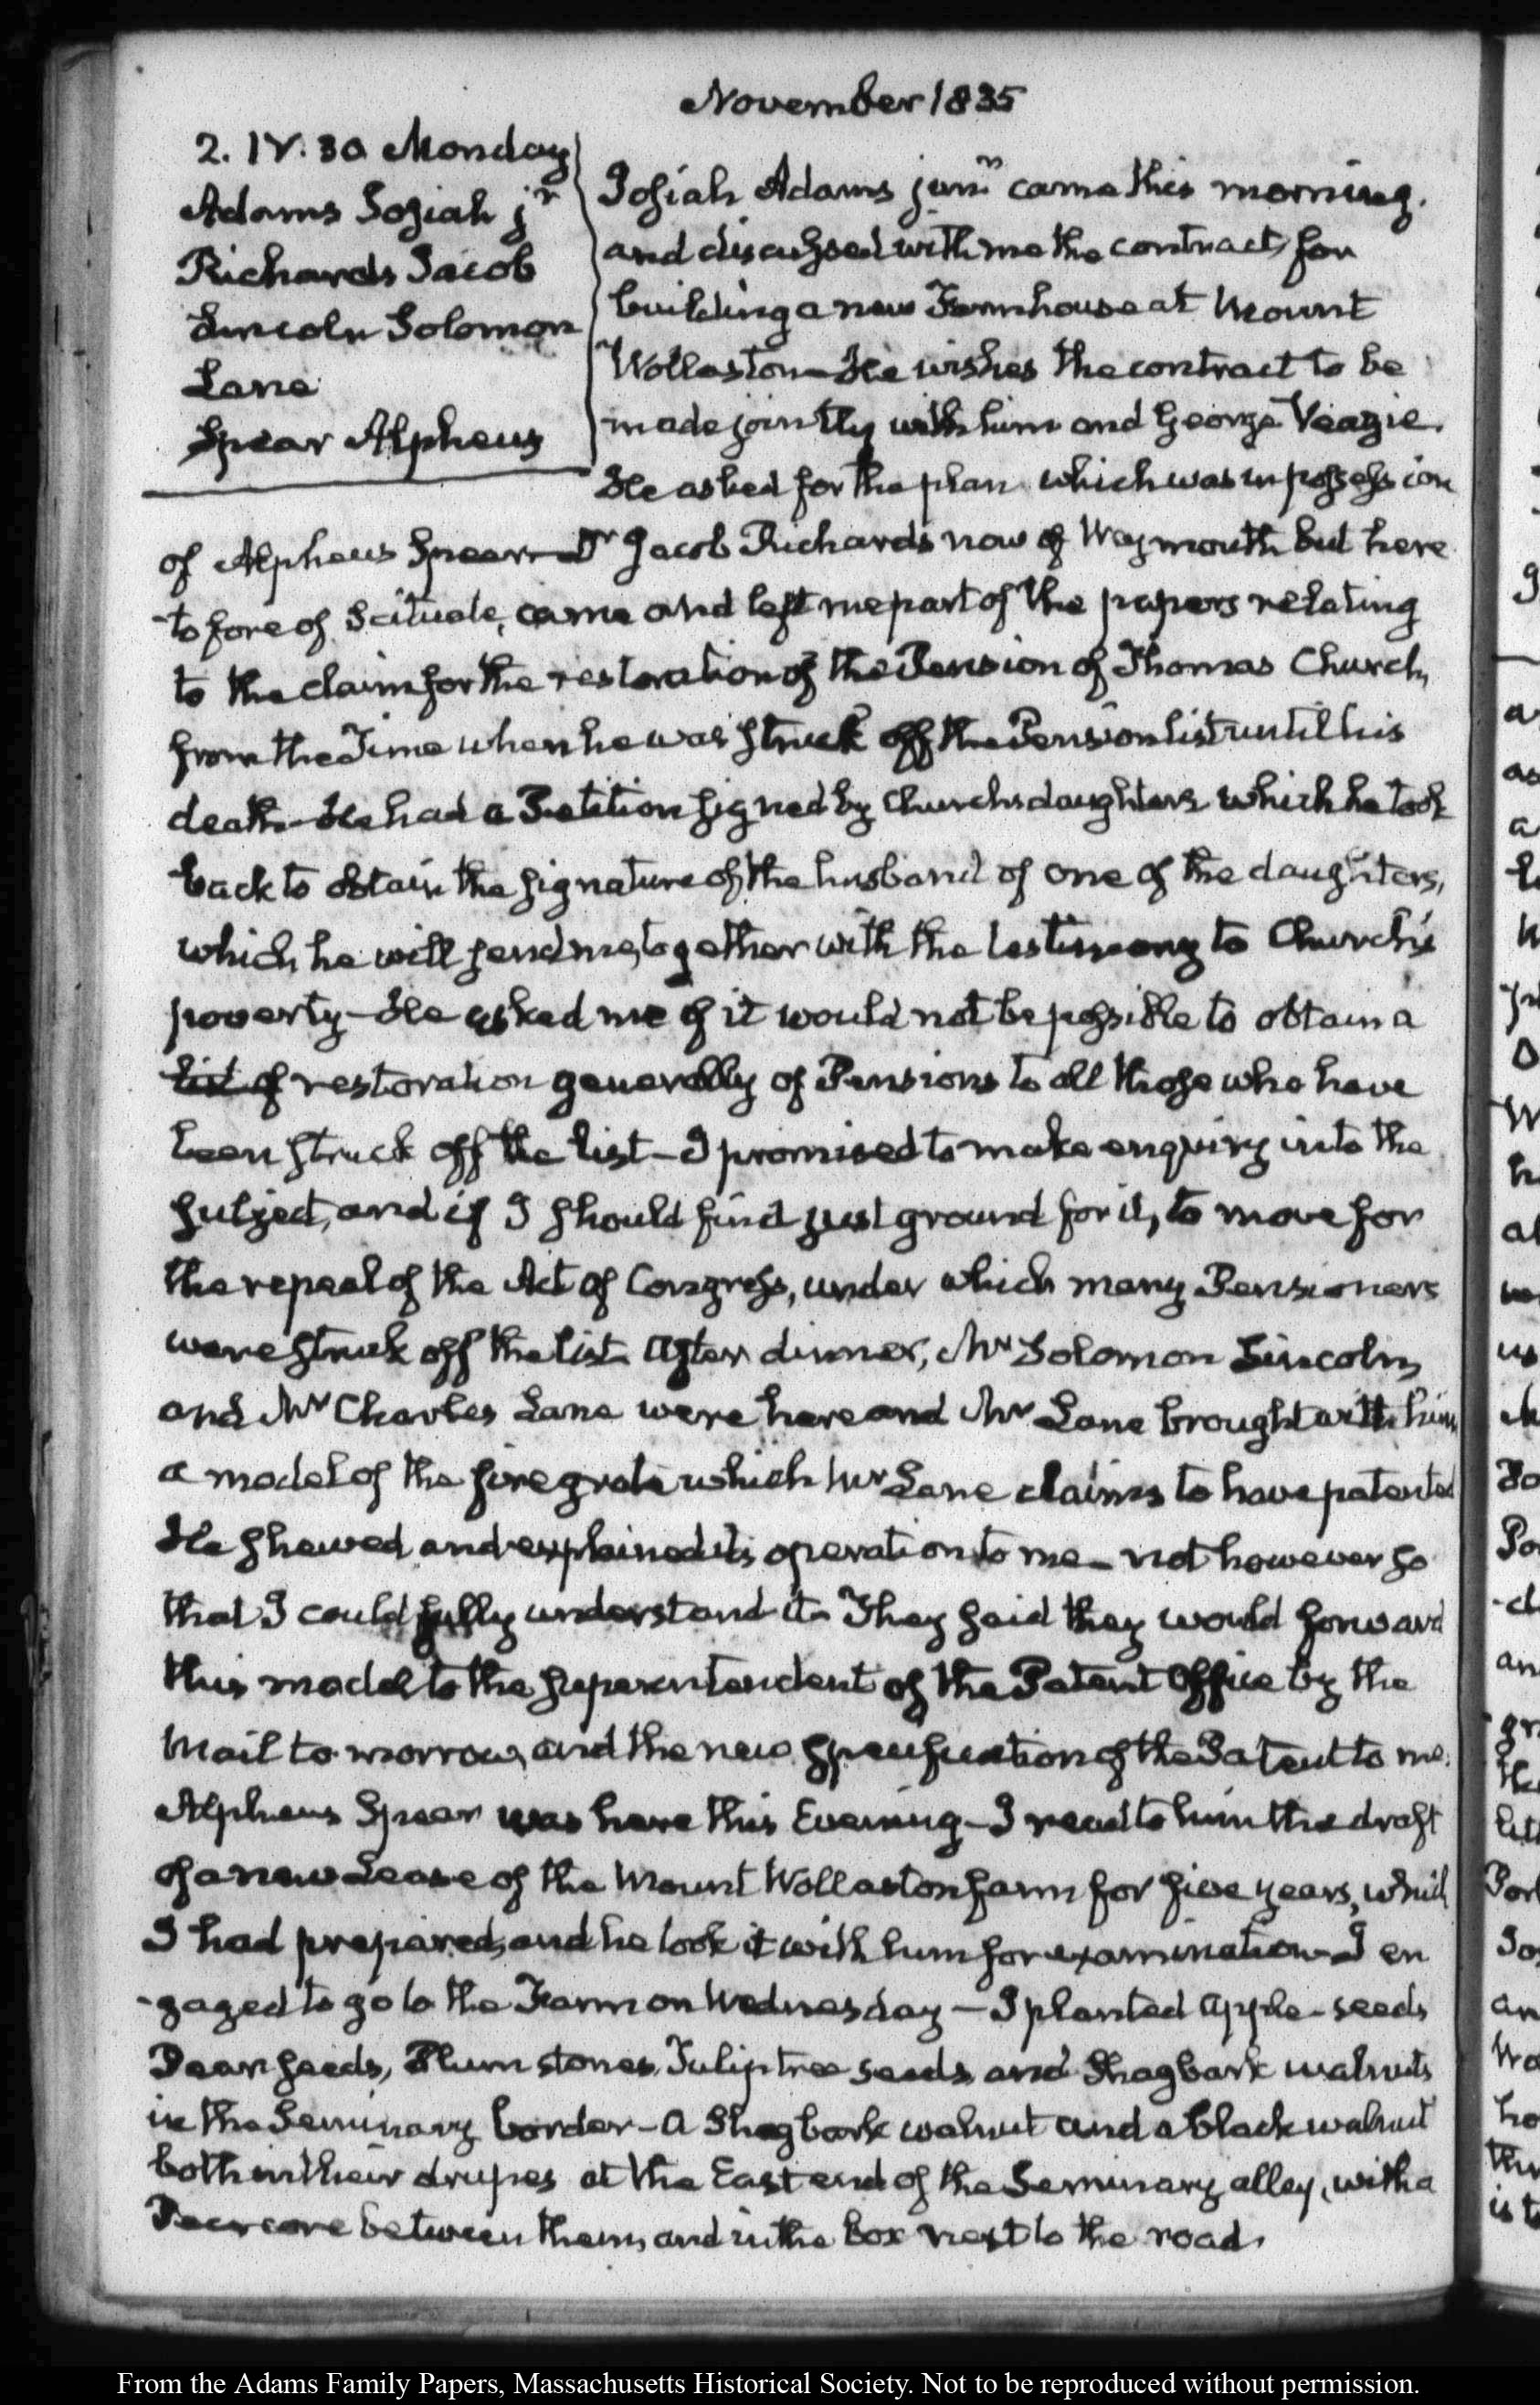 November 1835
2. IV. 30 Monday
Adams Josiah jr
Richards Jacob
Lincoln Solomon
Lane
Spear Alpheus
Josiah Adams junr came this morning.
and discussed with me the contract for
building a new Farmhouse at Mount
Wollaston— He wishes the contract to be
made jointly with him and George Veazie.
He asked for the plan which was in possession
of Alpheus Spear— Dr Jacob Richards now of Weymouth but here
-tofore of Scituate, came and left me part of the papers relating
to the claim for the restoration of the Pension of Thomas Church,
from the Time when he was struck off the Pension list until his
death— He had a Petition signed by Church's daughters which he took
back to obtain the signature of the husband of one of the daughters,
which he will send me, together with the testimony to Church's
poverty— He asked me if it would not be possible to obtain a
list of restoration generally of Pensions to all those who have
been struck off the list— I promised to make enquiry into the
subject, and if I should find just ground for it, to move for
the repeal of the Act of Congress, under which many Pensioners
were struck off the list. After dinner, Mr Solomon Lincoln,
and Mr Charles Lane were here and Mr Lane brought with him
a model of the fire grate which Mr Lane claims to have patented
He shewed and explained its operation to me— not however so
that I could fully understand it— They said they would forward
this model to the Superintendent of the Patent Office by the
Mail to-morrow, and the new specification of the Patent to me.
Alpheus Spear was here this Evening— I read to him the draft
of a new Lease of the Mount Wollaston farm for five years, which
I had prepared, and he took it with him for examination— I en
-gaged to go to the Farm on Wednesday— I planted Apple-seeds
Pear seeds, Plum stones, Tulip tree seeds and Shagbark walnuts
in the Seminary border— A Shagbark walnut and a black walnut
both in their drupes at the East end of the Seminary alley, with a
between them, and in the box next to the road.
From the Adams Family Papers, Massachusetts Historical Society. Not to be reproduced without permission.